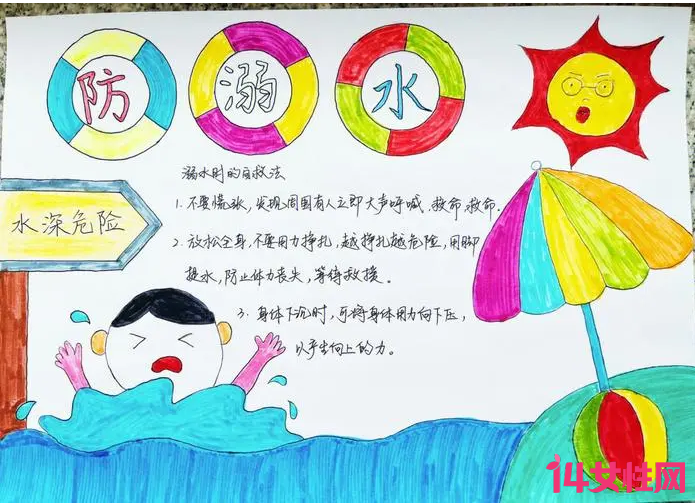 防溺水
溺水时的自救法
1. 不要慌张，发现周围有人立即大声呼喊，救命，救命。
水深危险
2. 放松全身，不要用力挣扎，越挣扎越危险，用脚
提水，防止体力丧失，等待救援。
3. 身体下沉时，可将身体用力向下压，
以产生向上的力。
14女性网